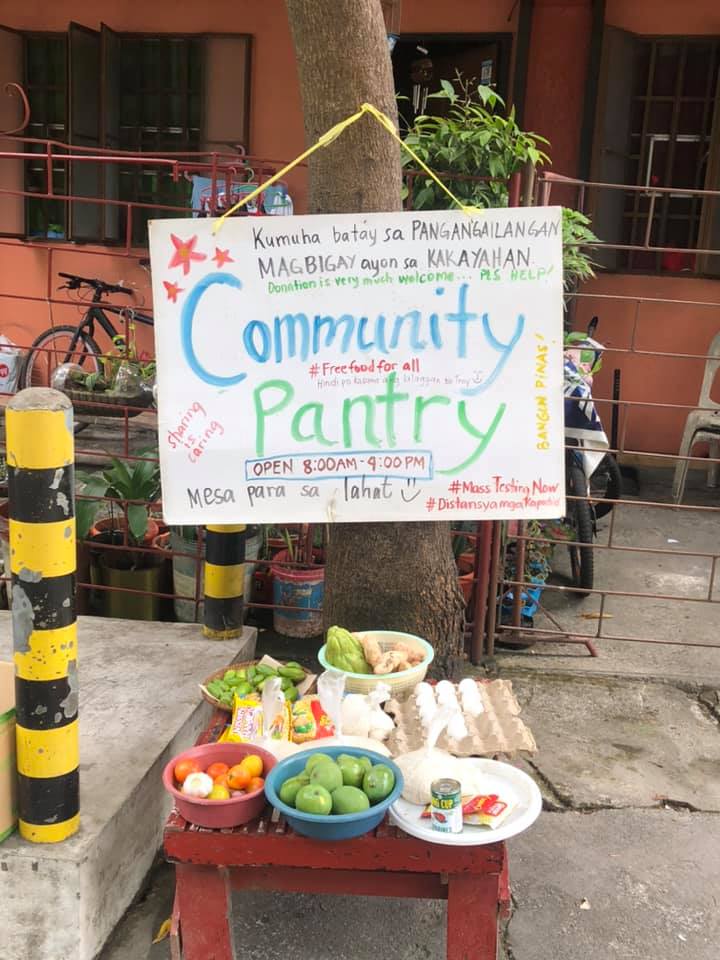 Kumuha batay sa PANGANGAILANGAN
MAGBIGAY ayon sa KAKAYAHAN.
Donation is very much welcome... PLS HELP!
Community
#Freefood for all
Hindi po kasama ang lalagyan sa Tray
Pantry
sharing
is
caring
BANGON PINAS!
OPEN 8:00AM-4:00PM
Mesa para sa lahat
#Mass Testing Now
#Distansya mga Kapatid
CUP